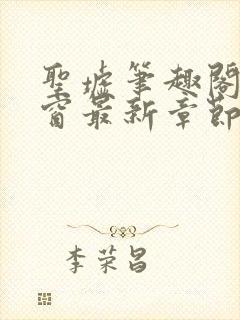 聖墟筆趣閣
窗最新章節
李荣昌